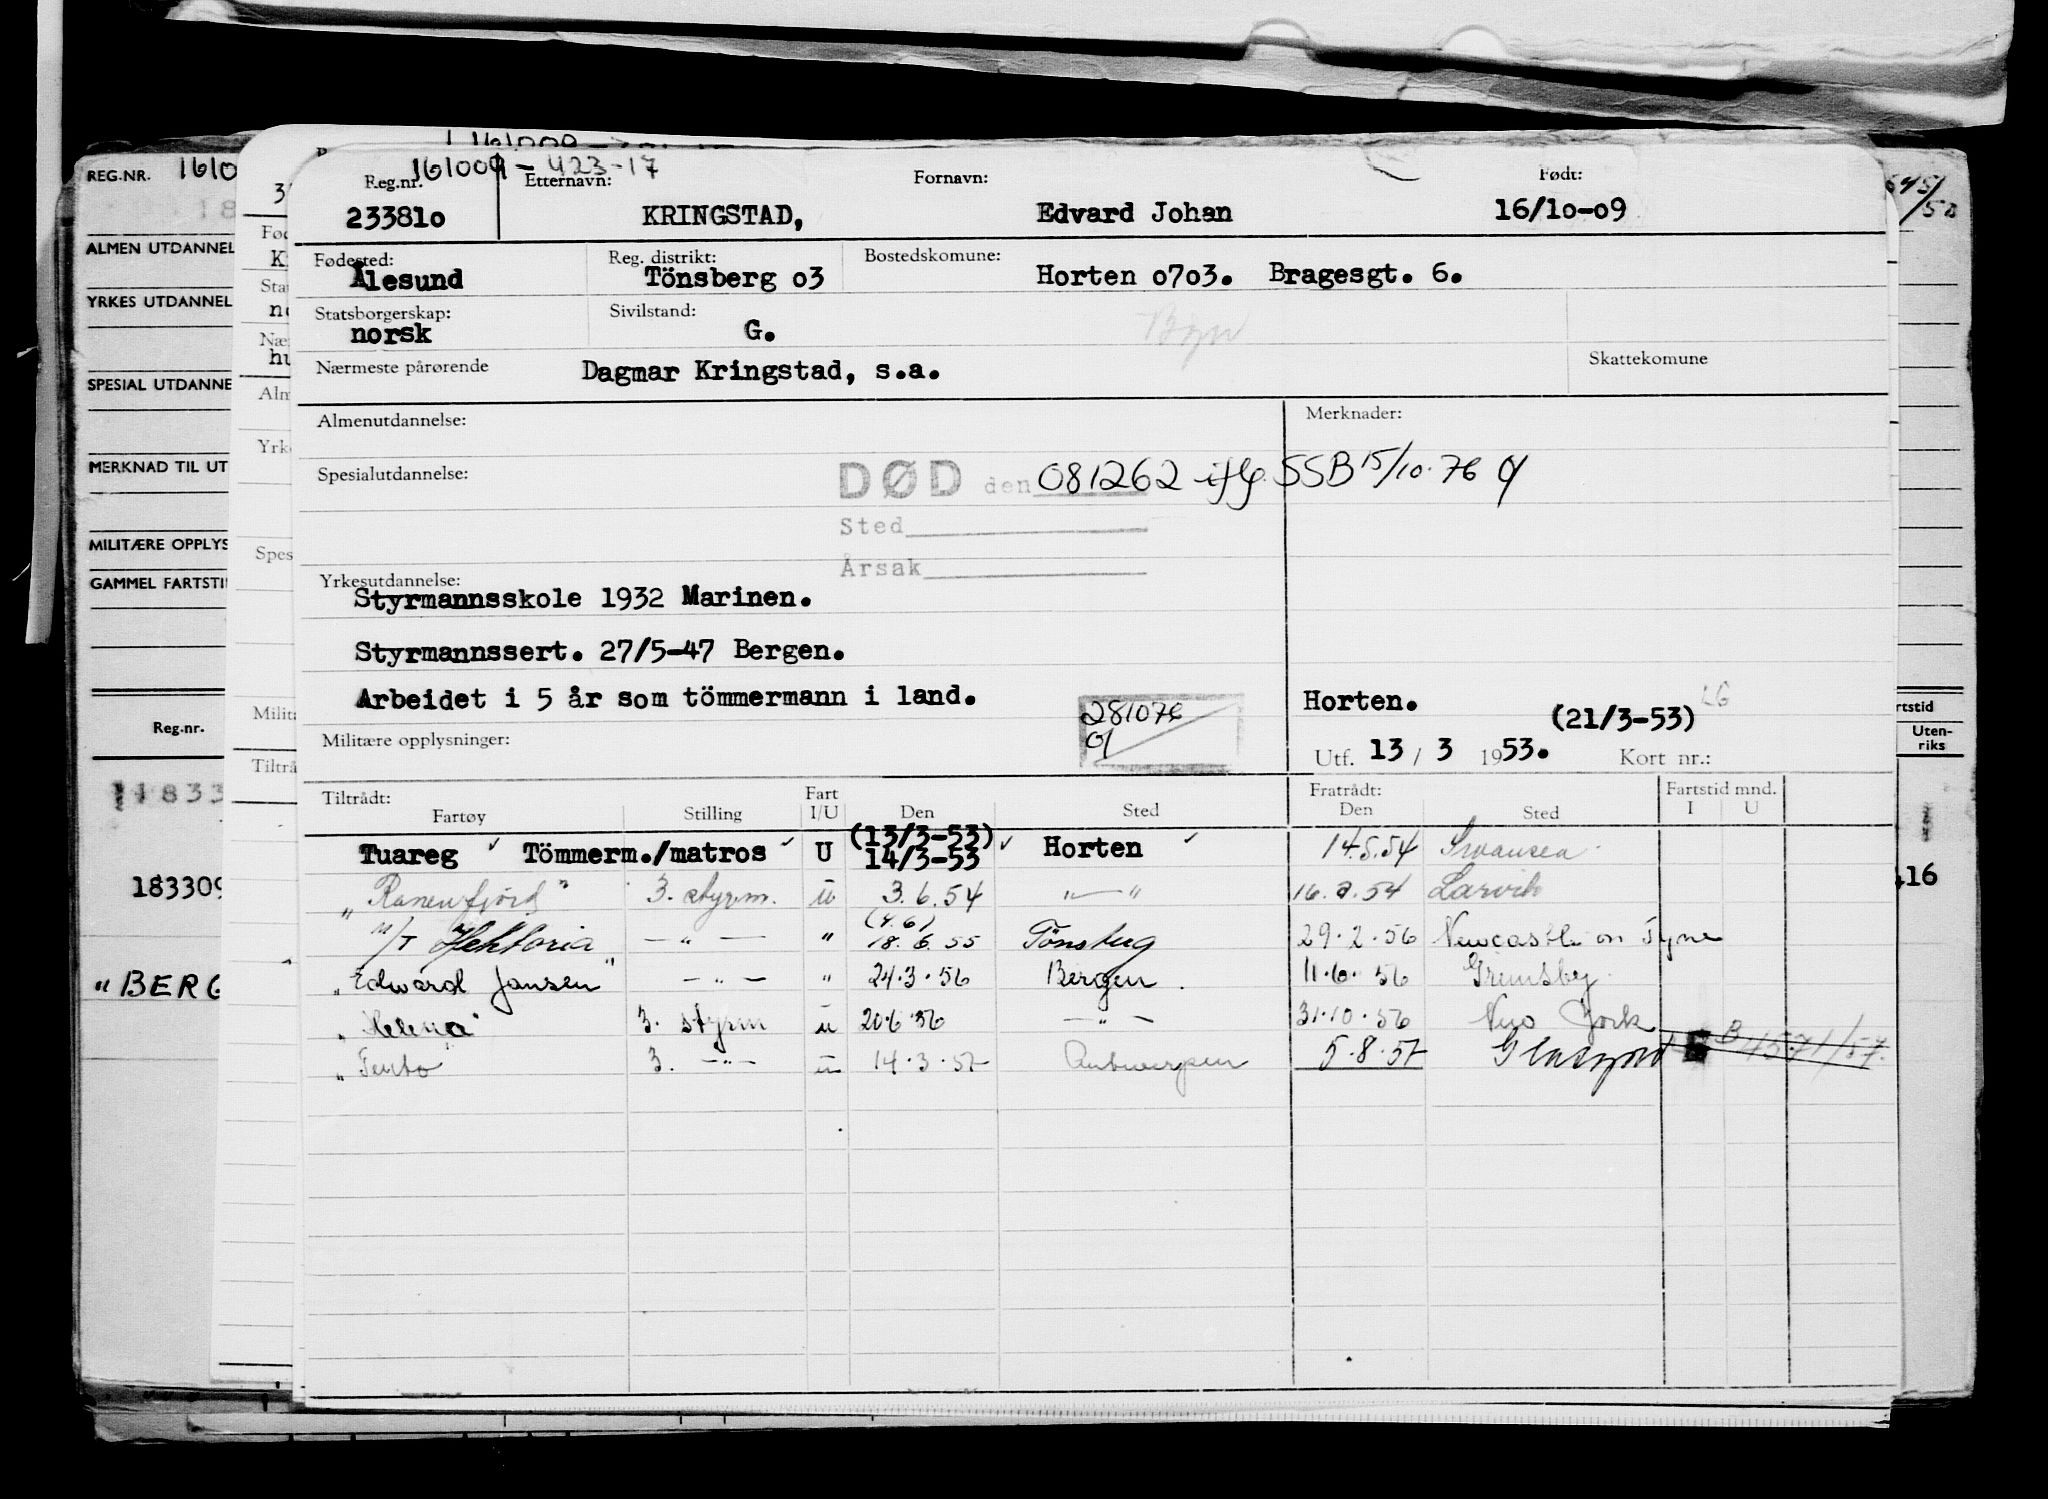 161009-423-17
Reg.nr. Etternavn: Fornavn: Født:
23381o KRINGSTAD, Edvard Johan 16/1o-o9
Fødested: Reg. distrikt: Bostedskomune:
Ålesund Tönsberg o3 Horten o7o3. Bragesgt. 6.
Statsborgerskap: Sivilstand:
norsk G.
Nærmeste pårørende Dagmar Kringstad, s.a. Skattekomune
Almenutdannelse: Merknader:
Spesialutdannelse: DØD den 081262 iflg. SSB 15/10-76
Sted
Årsak
Yrkesutdannelse:
Styrmannsskole 1932 Marinen.
Styrmannssert. 27/5-47 Bergen.
Arbeidet i 5 år som tömmermann i land. Horten.
281076 (21/3-53)
Militære opplysninger: Utf. 13 / 3 1953. Kort nr.:
Tiltrådt: Fart Fratrådt: Fartstid mnd.
Fartøy Stilling I/U Den Sted Den Sted I U
(13/3-53)
Tuareg Tömmerm./matros U 14/3-53 Horten 14.5.54 Swansea
"Ranenfjord" 3. styrm. u 3.6.54 "—" 16.2.54 Larvik
(4.6)
M/T Hektoria —"— " 18.6.55 Tönsberg 29.2.56 Newcastle on Tyne
"Edward Jansen" —"— " 24.3.56 Bergen 11.6.56 Grimsby
"Helena" 3. styrm u 20.6.56 —"— 31.10.56 New York
3. —"— u 14.3.57 Antwerpen 5.8.57 B 4571/57.
REG.NR. 1610
ALMEN UTDANNEL
YRKES UTDANNEL
SPESIAL UTDANNE
MERKNAD TIL UT
MILITÆRE OPPLYS
GAMMEL FARTSTI
Reg.nr.
1833
183309
"BERG
3
Fød
K
Stat
no
Nær
hu
Alm
Yrke
Spes
Milit
Tiltrå
645/52
rtstid
Uten-
riks
416